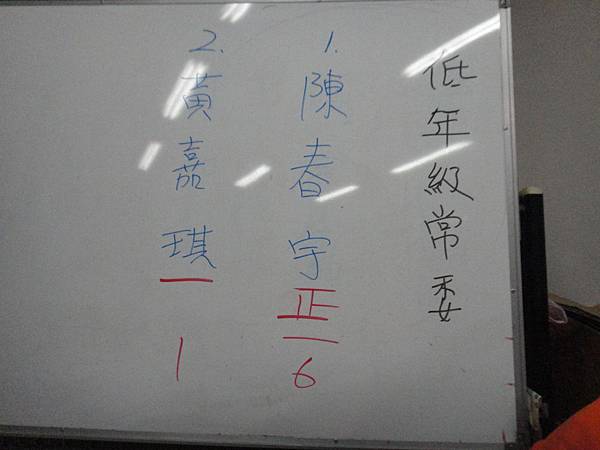 低年級常委
1.陳春宇
正一
6
2.黃嘉琪
一
1